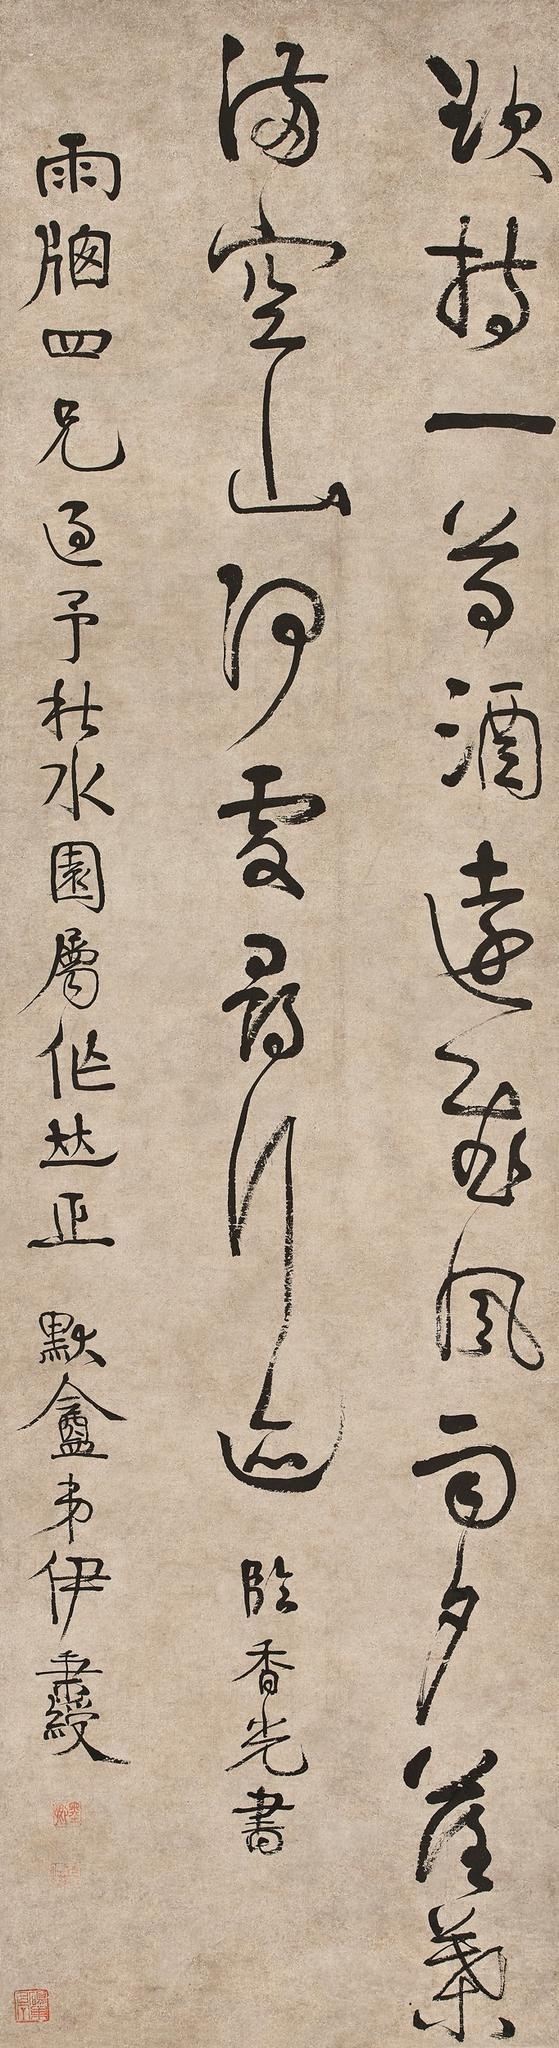 欲持一尊酒遠慰風雨夕落葉
滿空山何處尋行迹
臨香光書
雨牕四兄過予秋水園屬作其正
默盦弟伊秉綬